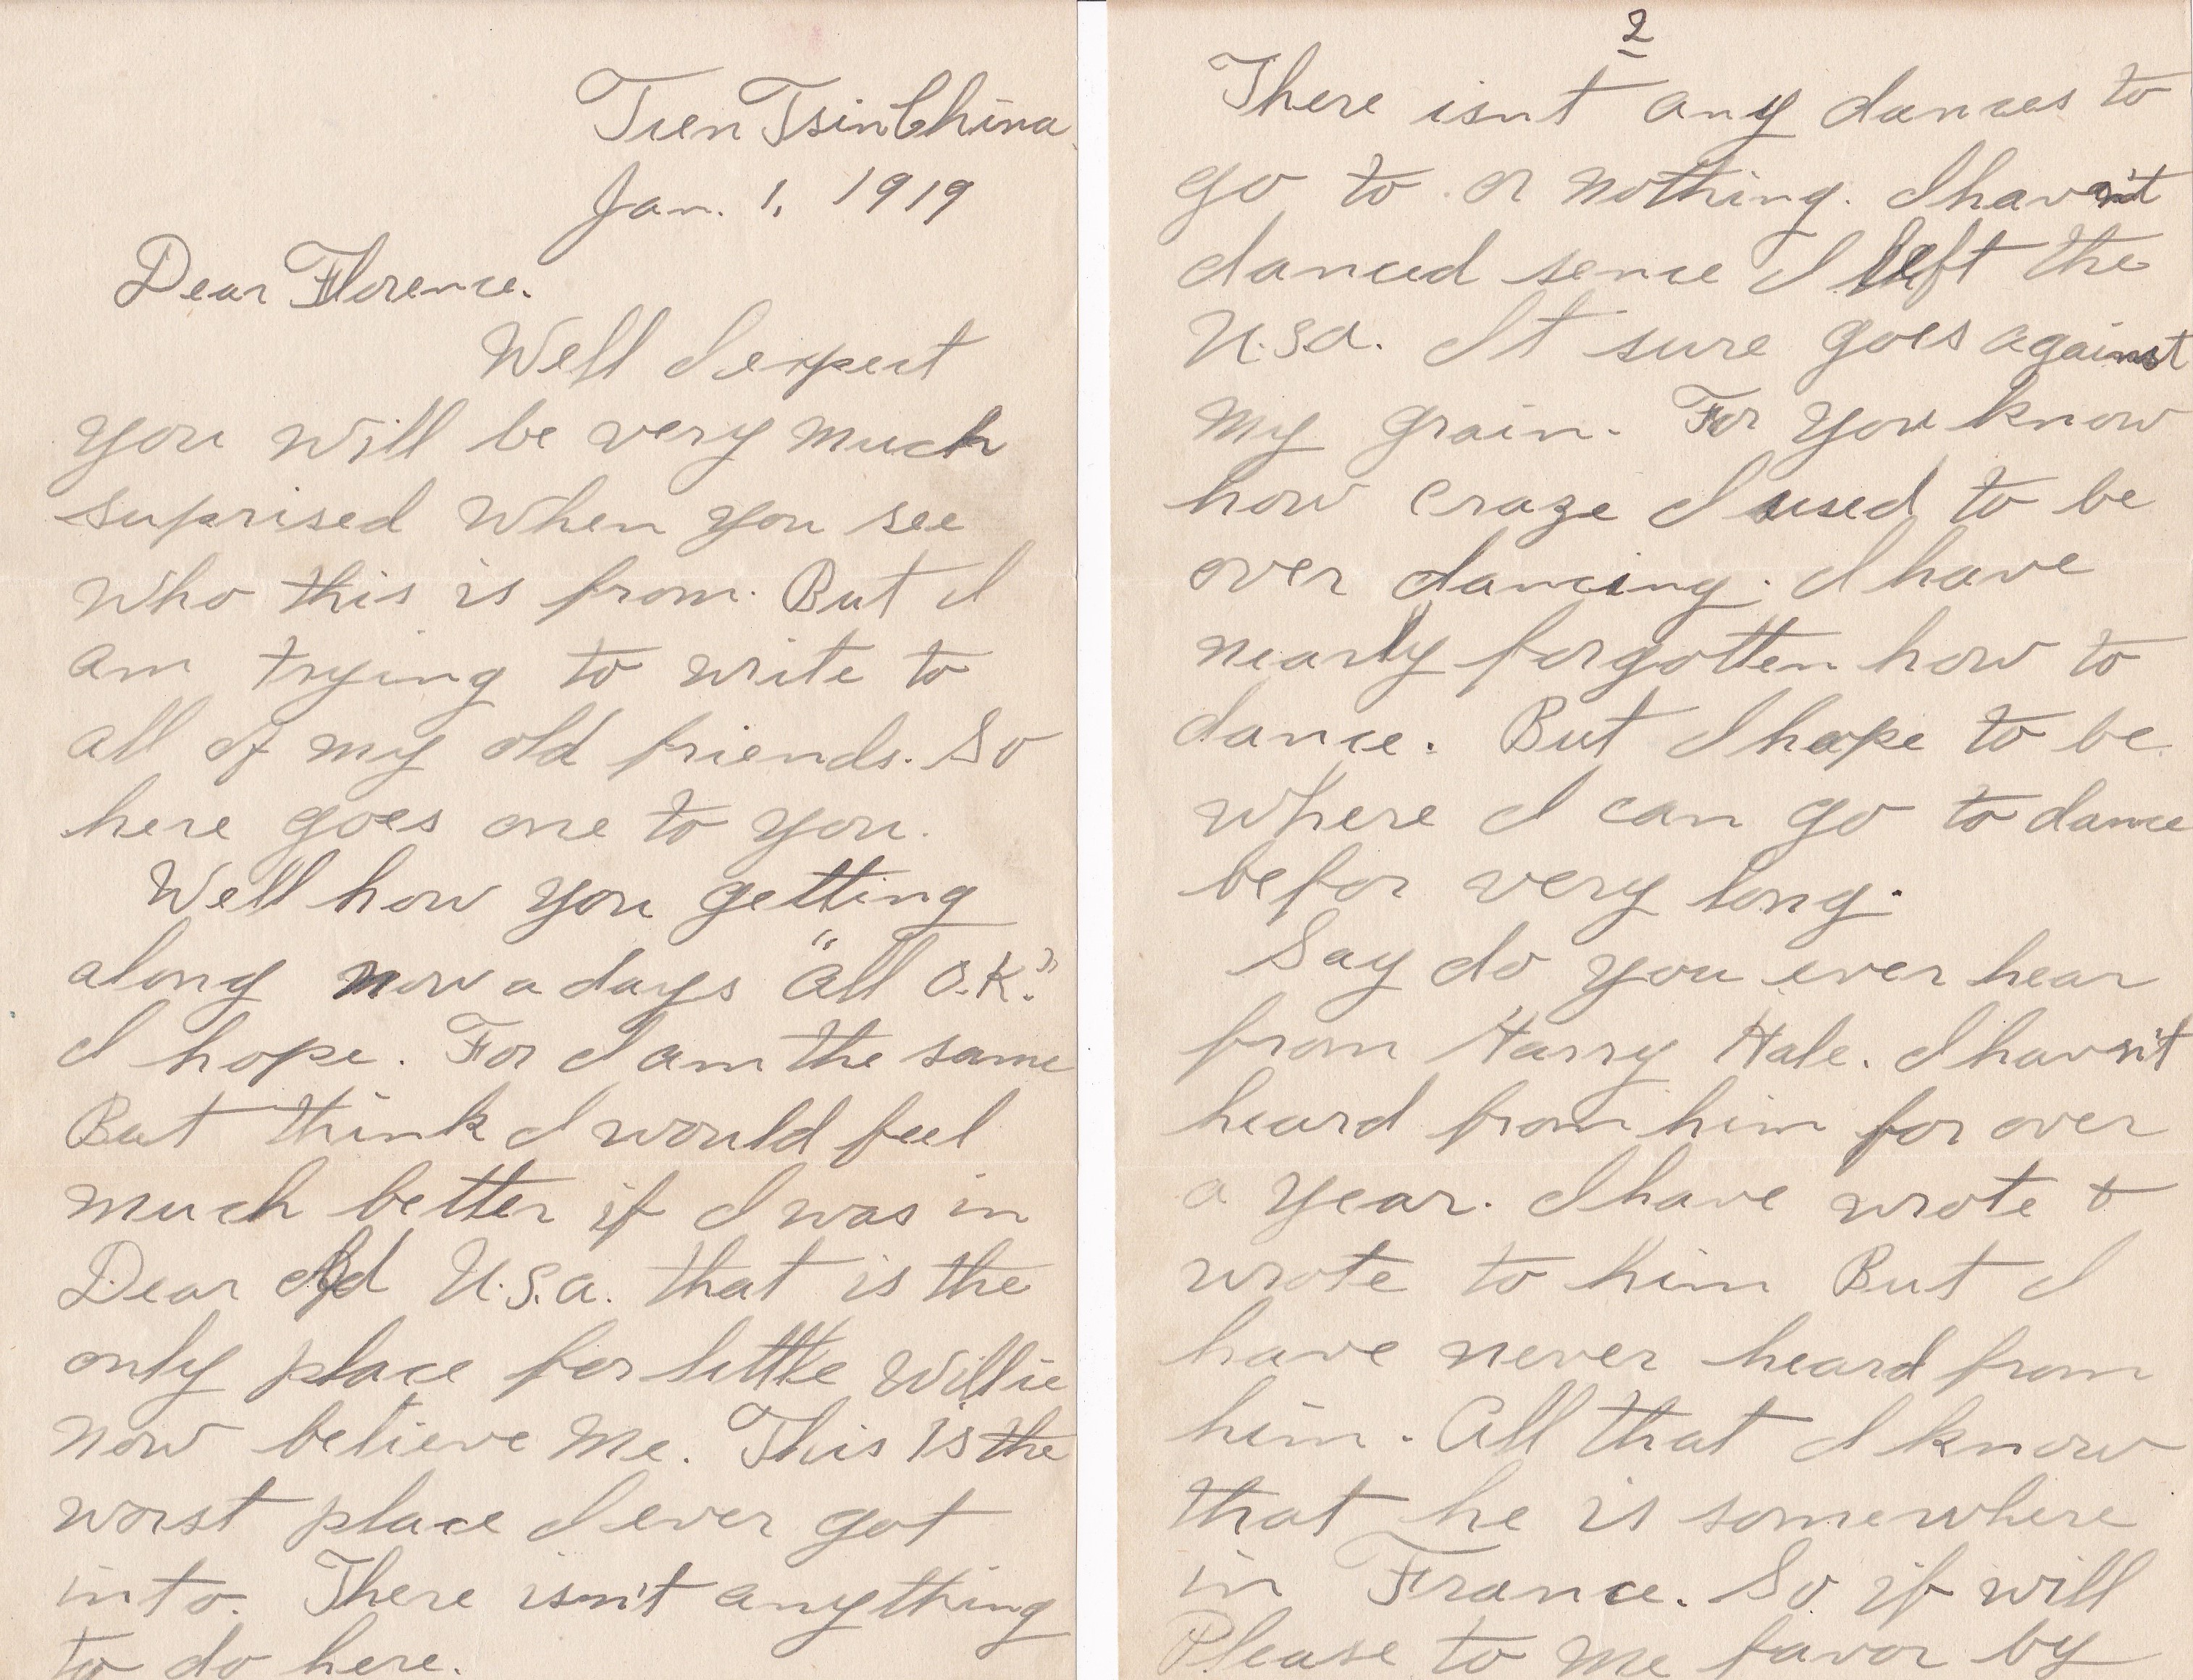 Tien Tsin China
Jan. 1, 1919
Dear Florence.
Well I expect
you will be very much
suprised when you see
who this is from. But I
am trying to write to
all of my old friends. So
here goes one to you.
Well how you getting
along now a days "all O.K."
I hope. For I am the same
But think I would feel
much better if I was in
Dear Old U.S.a. that is the
only place for little Willie
now believe me. This is the
worst place I ever got
into. There isn't anything
to do here.
2
There isnt any dances to
go to or nothing. I havn't
danced sence I left the
U.S.a. It sure goes against
my grain. For you know
how craze I used to be
over dancing. I have
nearly forgotten how to
dance. But I hope to be
where I can go to dance
befor very long.
Say do you ever hear
from Harry Hale. I havn't
heard from him for over
a year. I have wrote &
wrote to him But I
have never heard from
him. All that I know
that he is somewhere
in France. So if will
Please to me favor by